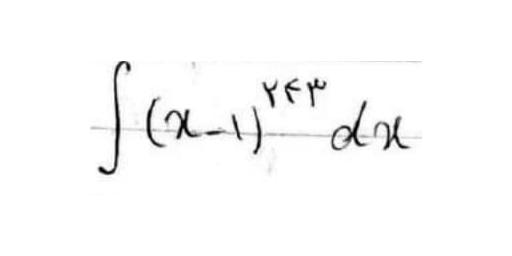 ∫(x-1)^۲۴۳ dx